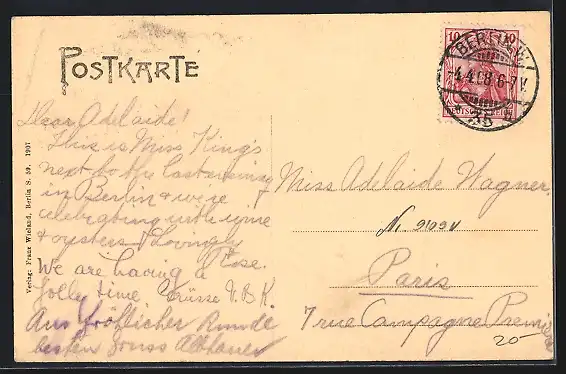 POSTKARTE
Dear Adelaide!
This is Miss King's
next to the last evening
in Berlin & we're
celebrating with wine
& oysters. Lovingly
Rose.
We are having a
jolly time Grüsse V. B. K.
Aus fröhlicher Runde
besten Gruss
Verlag: Franz Wieland, Berlin S. 59. 1907
10 10
DEUTSCHES REICH
BERLIN W.
4.4.08 6-7 V.
*35
Miss Adelaide Wagner
Paris
7 rue Campagne Première
20-